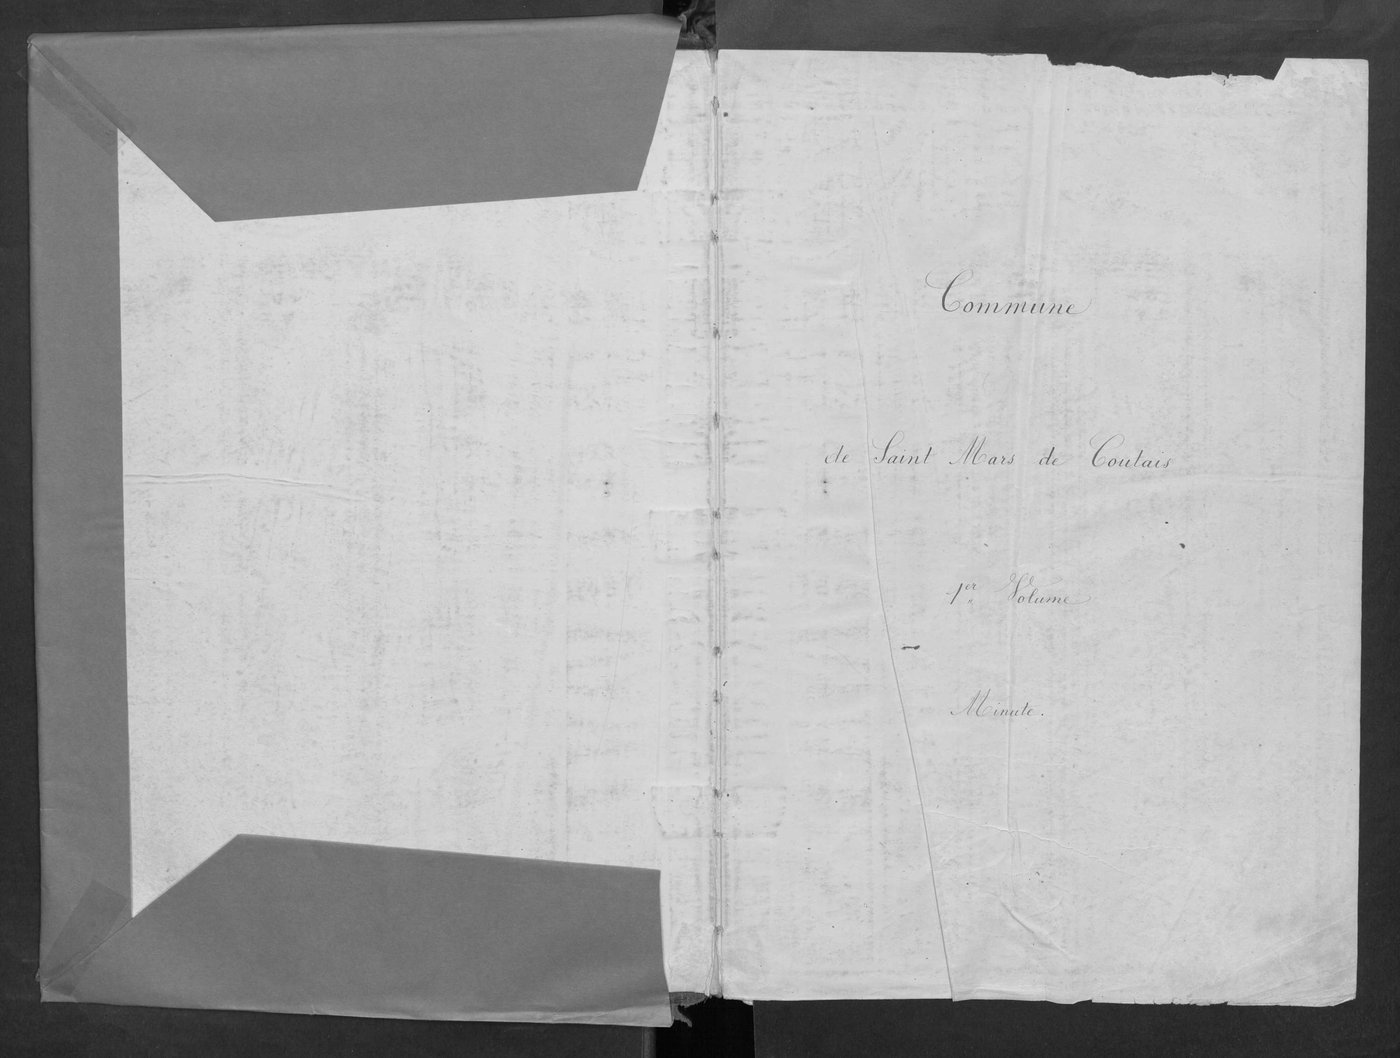 Commune
de Saint Mars de Coutais
1er Volume
Minute.